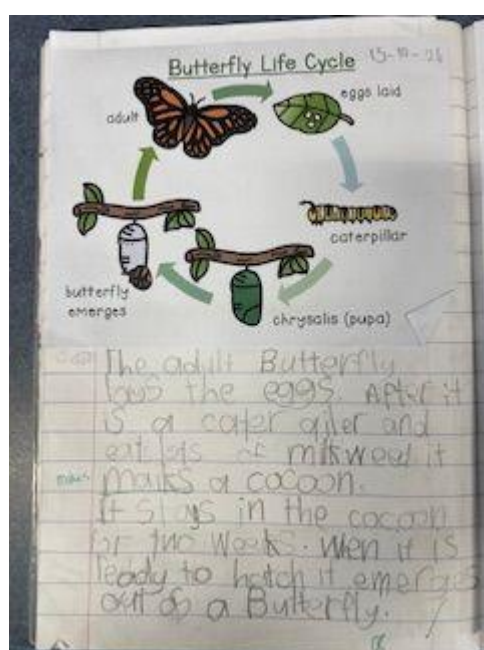 Butterfly Life Cycle
adult
eggs laid
caterpillar
butterfly
emerges
chrysalis (pupa)
The adult Butterfly
lays the eggs. After it
is a cater and
eat lots of milkweed it
makes
maiks a cocoon.
It stays in the cocoon
for two weeks. When it is
ready to hatch it emerges
out as a Butterfly.